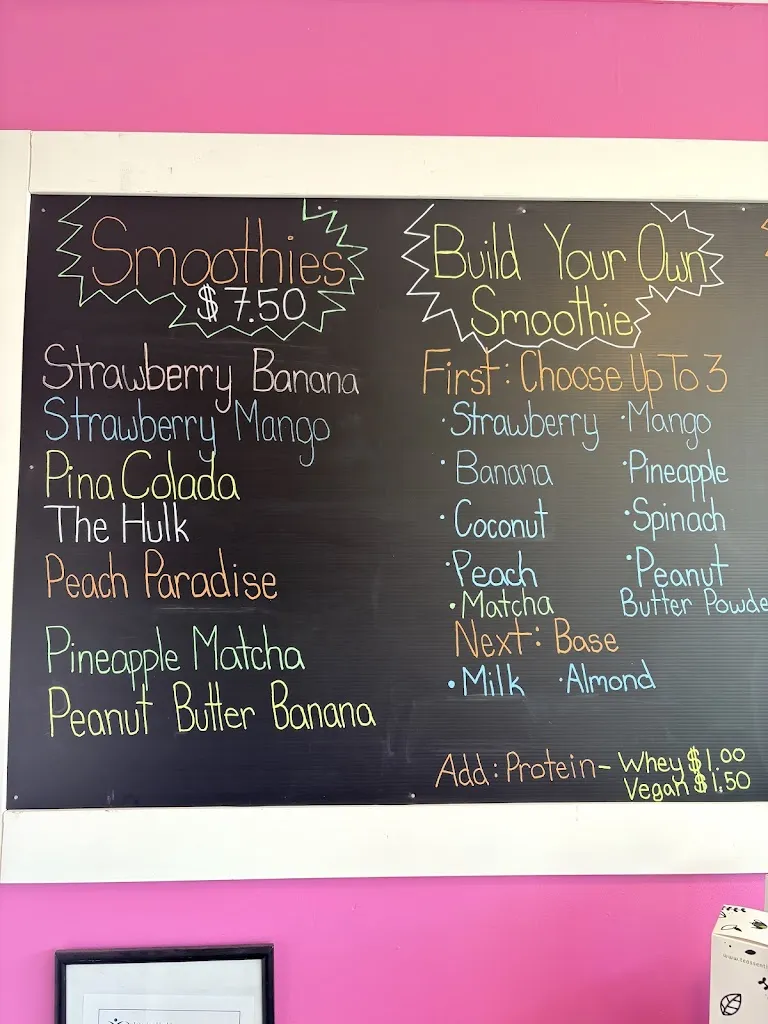 Smoothies
$7.50
Strawberry Banana
Strawberry Mango
Pina Colada
The Hulk
Peach Paradise
Pineapple Matcha
Peanut Butter Banana
Build Your Own
Smoothie
First: Choose Up To 3
• Strawberry • Mango
• Banana • Pineapple
• Coconut • Spinach
• Peach • Peanut
• Matcha Butter Powde
Next: Base
• Milk • Almond
Add: Protein - Whey $1.00
Vegan $1.50